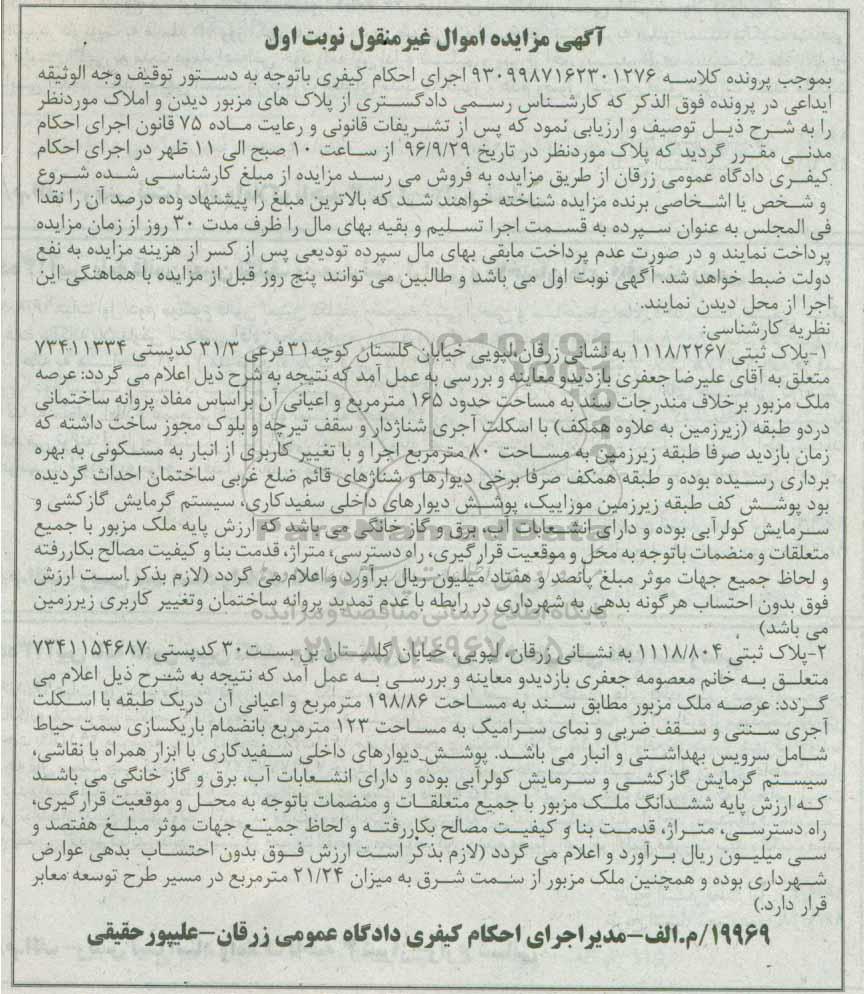 آگهی مزایده اموال غیرمنقول نوبت اول
بموجب پرونده کلاسه ۹۳۰۹۹۸۷۱۶۲۳۰۱۲۷۶ اجرای احکام کیفری باتوجه به دستور توقیف وجه الوثیقه
ایداعی در پرونده فوق الذکر که کارشناس رسمی دادگستری از پلاک های مزبور دیدن و املاک موردنظر
را به شرح ذیل توصیف و ارزیابی نمود که پس از تشریفات قانونی و رعایت ماده ۷۵ قانون اجرای احکام
مدنی مقرر گردید که پلاک موردنظر در تاریخ ۹۶/۹/۲۹ از ساعت ۱۰ صبح الی ۱۱ ظهر در اجرای احکام
کیفری دادگاه عمومی زرقان از طریق مزایده به فروش می رسد مزایده از مبلغ کارشناسی شده شروع
و شخص یا اشخاصی برنده مزایده شناخته خواهند شد که بالاترین مبلغ را پیشنهاد وده درصد آن را نقدا
فی المجلس به عنوان سپرده به قسمت اجرا تسلیم و بقیه بهای مال را ظرف مدت ۳۰ روز از زمان مزایده
پرداخت نمایند و در صورت عدم پرداخت مابقی بهای مال سپرده تودیعی پس از کسر از هزینه مزایده به نفع
دولت ضبط خواهد شد. آگهی نوبت اول می باشد و طالبین می توانند پنج روز قبل از مزایده با هماهنگی این
اجرا از محل دیدن نمایند.
نظریه کارشناسی:
۱-پلاک ثبتی ۱۱۱۸/۲۲۶۷ به نشانی زرقان،لپویی خیابان گلستان کوچه۳۱ فرعی ۳۱/۳ کدپستی ۷۳۴۱۱۳۳۴
متعلق به آقای علیرضا جعفری بازدیدو معاینه و بررسی به عمل آمد که نتیجه به شرح ذیل اعلام می گردد: عرصه
ملک مزبور برخلاف مندرجات سند به مساحت حدود ۱۶۵ مترمربع و اعیانی آن براساس مفاد پروانه ساختمانی
دردو طبقه (زیرزمین به علاوه همکف) با اسکلت آجری شناژدار و سقف تیرچه و بلوک مجوز ساخت داشته که
زمان بازدید صرفا طبقه زیرزمین به مساحت ۸۰ مترمربع اجرا و با تغییر کاربری از انبار به مسکونی به بهره
برداری رسیده بوده و طبقه همکف صرفا برخی دیوارها و شناژهای قائم ضلع غربی ساختمان احداث گردیده
بود پوشش کف طبقه زیرزمین موزاییک، پوشش دیوارهای داخلی سفیدکاری، سیستم گرمایش گازکشی و
سرمایش کولرآبی بوده و دارای انشعابات آب، برق و گاز خانگی می باشد که ارزش پایه ملک مزبور با جمیع
متعلقات و منضمات باتوجه به محل و موقعیت قرارگیری، راه دسترسی، متراژ، قدمت بنا و کیفیت مصالح بکاررفته
و لحاظ جمیع جهات موثر مبلغ پانصد و هفتاد میلیون ریال برآورد و اعلام می گردد (لازم بذکر است ارزش
فوق بدون احتساب هرگونه بدهی به شهرداری در رابطه با عدم تمدید پروانه ساختمان وتغییر کاربری زیرزمین
می باشد)
۲-پلاک ثبتی ۱۱۱۸/۸۰۴ به نشانی زرقان، لپویی، خیابان گلستان بن بست۳۰ کدپستی ۷۳۴۱۱۵۴۶۸۷
متعلق به خانم معصومه جعفری بازدیدو معاینه و بررسی به عمل آمد که نتیجه به شرح ذیل اعلام می
گردد: عرصه ملک مزبور مطابق سند به مساحت ۱۹۸/۸۶ مترمربع و اعیانی آن دریک طبقه با اسکلت
آجری سنتی و سقف ضربی و نمای سرامیک به مساحت ۱۲۳ مترمربع بانضمام باریکسازی سمت حیاط
شامل سرویس بهداشتی و انبار می باشد. پوشش دیوارهای داخلی سفیدکاری با ابزار همراه با نقاشی،
سیستم گرمایش گازکشی و سرمایش کولرآبی بوده و دارای انشعابات آب، برق و گاز خانگی می باشد
که ارزش پایه ششدانگ ملک مزبور با جمیع متعلقات و منضمات باتوجه به محل و موقعیت قرارگیری،
راه دسترسی، متراژ، قدمت بنا و کیفیت مصالح بکاررفته و لحاظ جمیع جهات موثر مبلغ هفتصد و
سی میلیون ریال برآورد و اعلام می گردد (لازم بذکر است ارزش فوق بدون احتساب بدهی عوارض
شهرداری بوده و همچنین ملک مزبور از سمت شرق به میزان ۲۱/۲۴ مترمربع در مسیر طرح توسعه معابر
قرار دارد.)
۱۹۹۶۹/م.الف-مدیراجرای احکام کیفری دادگاه عمومی زرقان-علیپورحقیقی